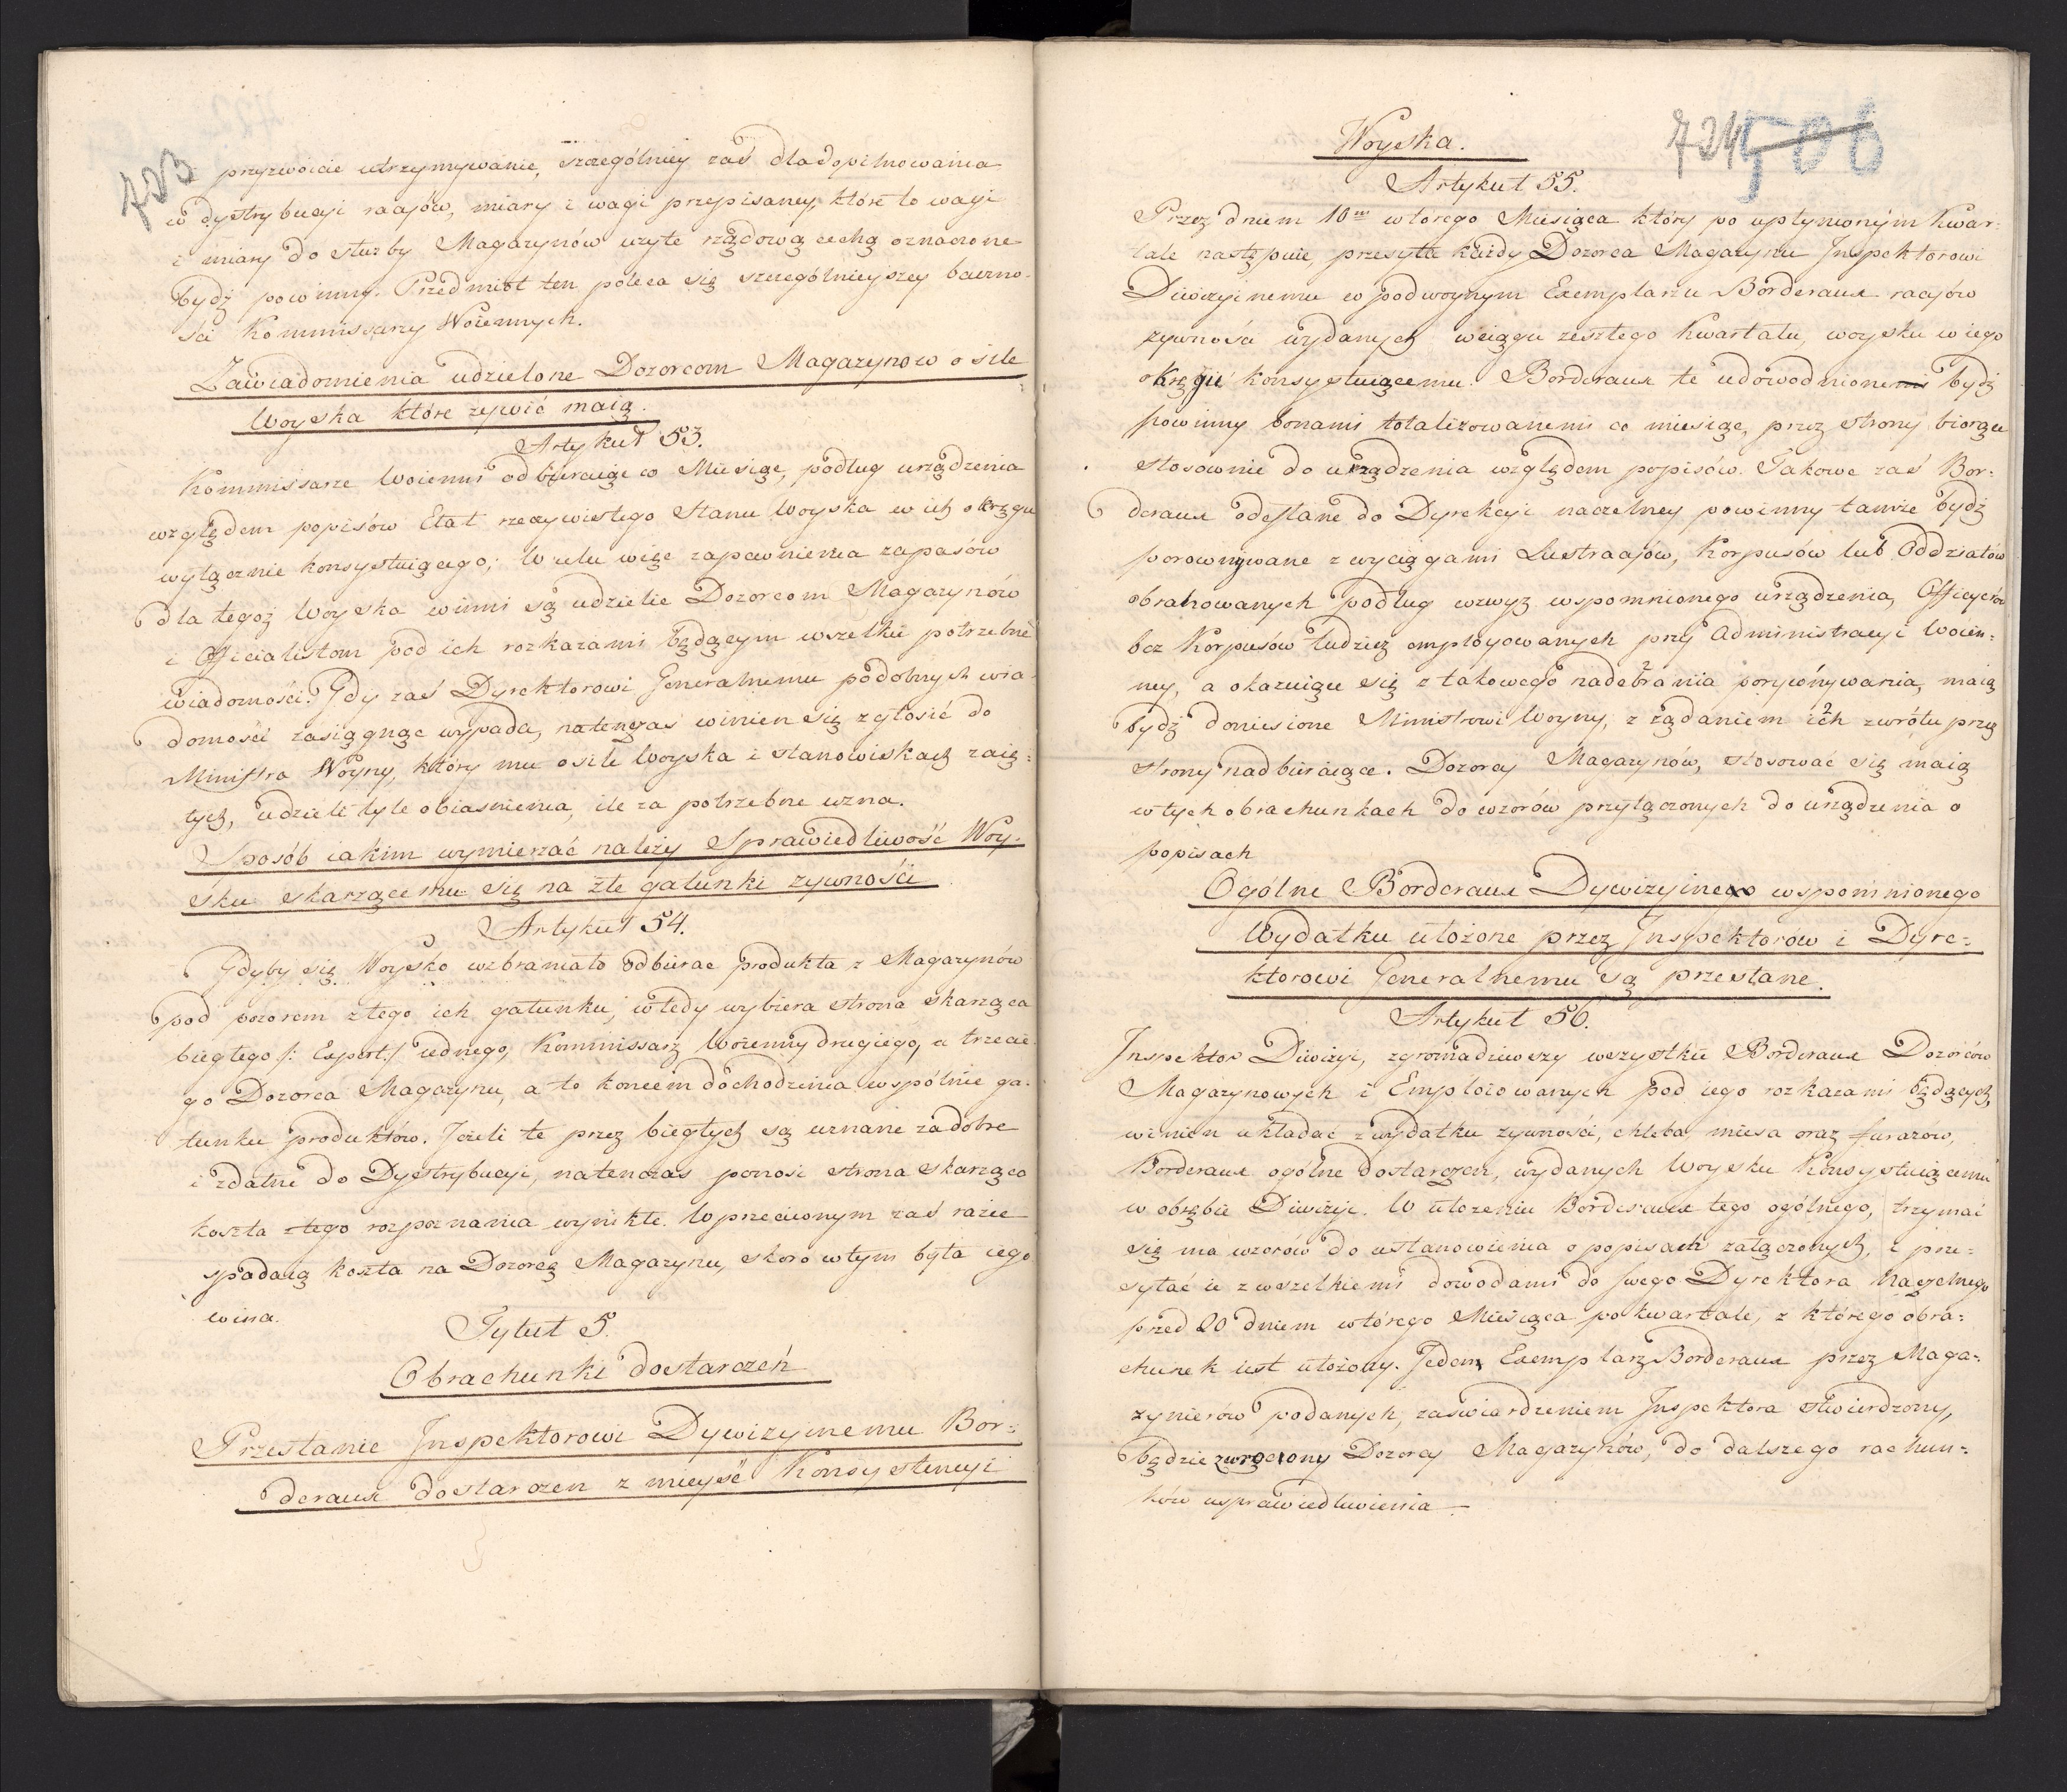 723
przyzwoicie utrzymywanie, szczególniey zaś dla dopilnowania
w dystrybucyi racyów, miary i wagi przepisaney, które to wagi
i miary do służby Magazynów użyte rządową cechą oznaczone
bydź powinny. Przedmiot ten poleca się szczególnieyszey baczno-
ści Kommissarzy Woiennych.
Zawiadomienia udzielone Dozorcom Magazynow o sile
Woyska które żywić maią.
Artykuł 53.
Kommissarze Woienni odbieraiąc co Miesiąc, podług urządzenia
względem popisów Etat rzeczywistego Stanu Woyska w ich okręgu
wyłącznie konsystuiącego; W celu więc zapewnienia zapasów
dla tegoż Woyska winni są udzielic Dozorcom Magazynów
i Officialistom pod ich rozkazami będącym wszelkie potrzebne
wiadomości. Gdy zaś Dyrektorowi Generalnemu podobnych wia-
domości zasiągnąc wypada, natenczas winien się zgłosić do
Ministra Woyny, który mu o sile Woyska i stanowiskach zaię:
tych, udzieli tyle obiasnienia, ile za potrzebne uzna.
Sposób iakim wymierzać należy Sprawiedliwość Woy-
sku skarzącemu się na złe gatunki zywności
Artykuł 54.
Gdyby się Woysko wzbraniało odbierac produkta z Magazynów
pod pozorem złego ich gatunku, wtedy wybiera strona skarząca
biegłego /: Expert:/ iednego, Kommissarz Woienny drugiego, a trzecie
go Dozorca Magazynu, a to koncem dochodzenia wspólnie ga-
tunku produktów. Jeżeli te przez biegłych są uznane za dobre
i zdatne do Dystrybucyi, natenczas ponosi strona skarząca
koszta z tego rozpoznania wynikłe. W przeciwnym zaś razie
spadaią koszta na Dozorcę Magazynu, skoro w tym była iego
wina.
Tytuł 5.
Obrachunki dostarczeń
Przesłanie Inspektorowi Dywizyinemu Bor:
deraux dostarczen z mieysc Konsystencyi
724 506
Woyska.
Artykuł 55.
Przez dniem 10m wtórego Miesiąca który po upłynionym Kwar:
tale następuie, przesyła każdy Dozorca Magazynu Inspektorowi
Diwizyinemu w podwoynym Exemplarzu Borderaux racyów
zywności wydanych w ciągu zeszłego Kwartału, woysku w iego
okręgu konsystuiącemu. Borderaux te udowodnione bydź
powinny bonami totalizowanemi co miesiąc, przez strony biorące
stosownie do urządzenia względem popisów. Takowe zaś Bor:
deraux odesłane do Dyrekcyi naczelney powinny tamże bydź
porownywane z wyciągami Lustracyów, Korpusów lub Oddziałów
obrahowanych podług wzwyz wspomnionego urządzenia, Officyerów
bez Korpusów tudzież employowanych przy Administracyi Woien:
ney, a okazuiące się z takowego nadebrania porywnywania, maią
bydź doniesione Ministrowi Woyny, z żądaniem ich zwrótu przez
strony nadbieraiące. Dozorcy Magazynów, stosować się maią
w tych obrachunkach do wzorów przyłączonych do urządzenia o
popisach
Ogólne Borderaux Dywizyine wspomnionego
Wydatku ułożone przez Inspektorów i Dyre-
ktorowi Generalnemu są przesłane.
Artykuł 56.
Inspektor Diwizyi, zgromadziwszy wszystkie Borderaux Dozorców
Magazynowych i Emploiowanych pod iego rozkazami będących,
winien układać z wydatku zywności, chleba, miesa oraz furazów,
Borderaux ogólne dostarczen, wydanych Woysku Konsystuiącemu
w obrębie Diwizyi. W ułozeniu Borderaux tego ogólnego, trzymać
się ma wzorów do ustanowienia o popisach załączonych, i prze-
syłać ie z wszelkiemi dowodami do swego Dyrektora Naczelnego
przed 20 dniem wtórego Miesiąca po kwartale, z którego obra:
chunek iest ułożony. Jeden Exemplarz Borderaux przez Maga-
zynierów podanych, zaświardzeniem Inspektora stwierdzony,
będzie zwrocony Dozorcy Magazynów, do dalszego rachun:
ków usprawiedliwienia —